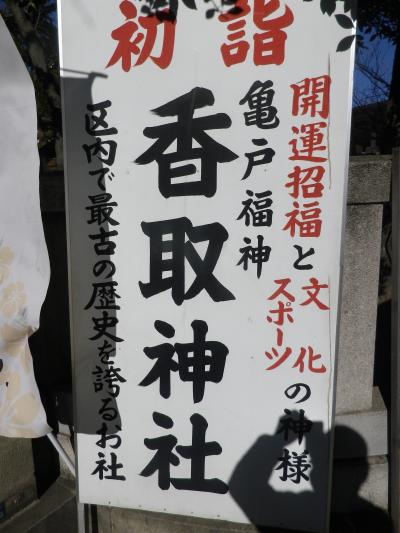 初詣
開運招福と文化スポーツの神様
亀戸福神
香取神社
区内で最古の歴史を誇るお社